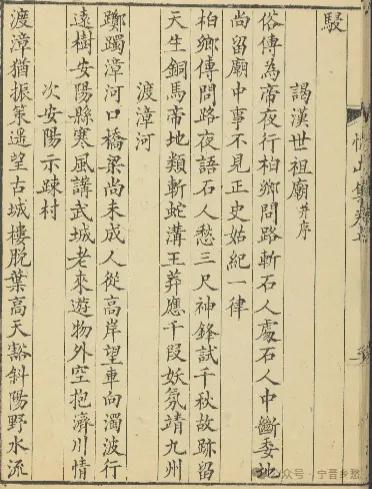 駸
謁漢世祖廟并序
俗傳為帝夜行柏鄉問路斬石人處石人中斷委地
尚留廟中事不見正史姑紀一律
柏鄉傳問路夜語石人愁三尺神鋒試千秋故跡留
天生銅馬帝地類斬蛇溝王莽應千段妖氛靖九州
渡漳河
躑躅漳河口橋梁尚未成人從高岸望車向濁波行
遠樹安陽縣寒風講武城老來遊物外空抱濟川情
次安陽示疎村
渡漳猶振策遥望古城樓脫葉高天豁斜陽野水流
公众号·宁晋乡愁